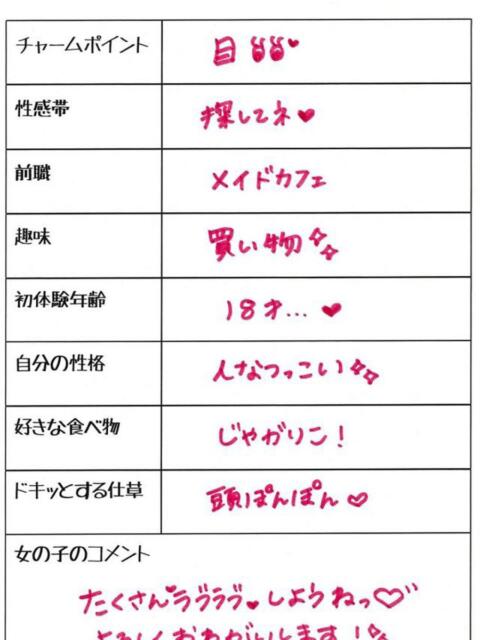 チャームポイント 目♥
性感帯 探してネ♥
前職 メイドカフェ
趣味 買い物
初体験年齢 18才…♥
自分の性格 人なつっこい
好きな食べ物 じゃがりこ！
ドキッとする仕草 頭ぽんぽん♡
女の子のコメント
たくさん♥ラブラブ♥しようねっ♡
よろしくおねがいします！